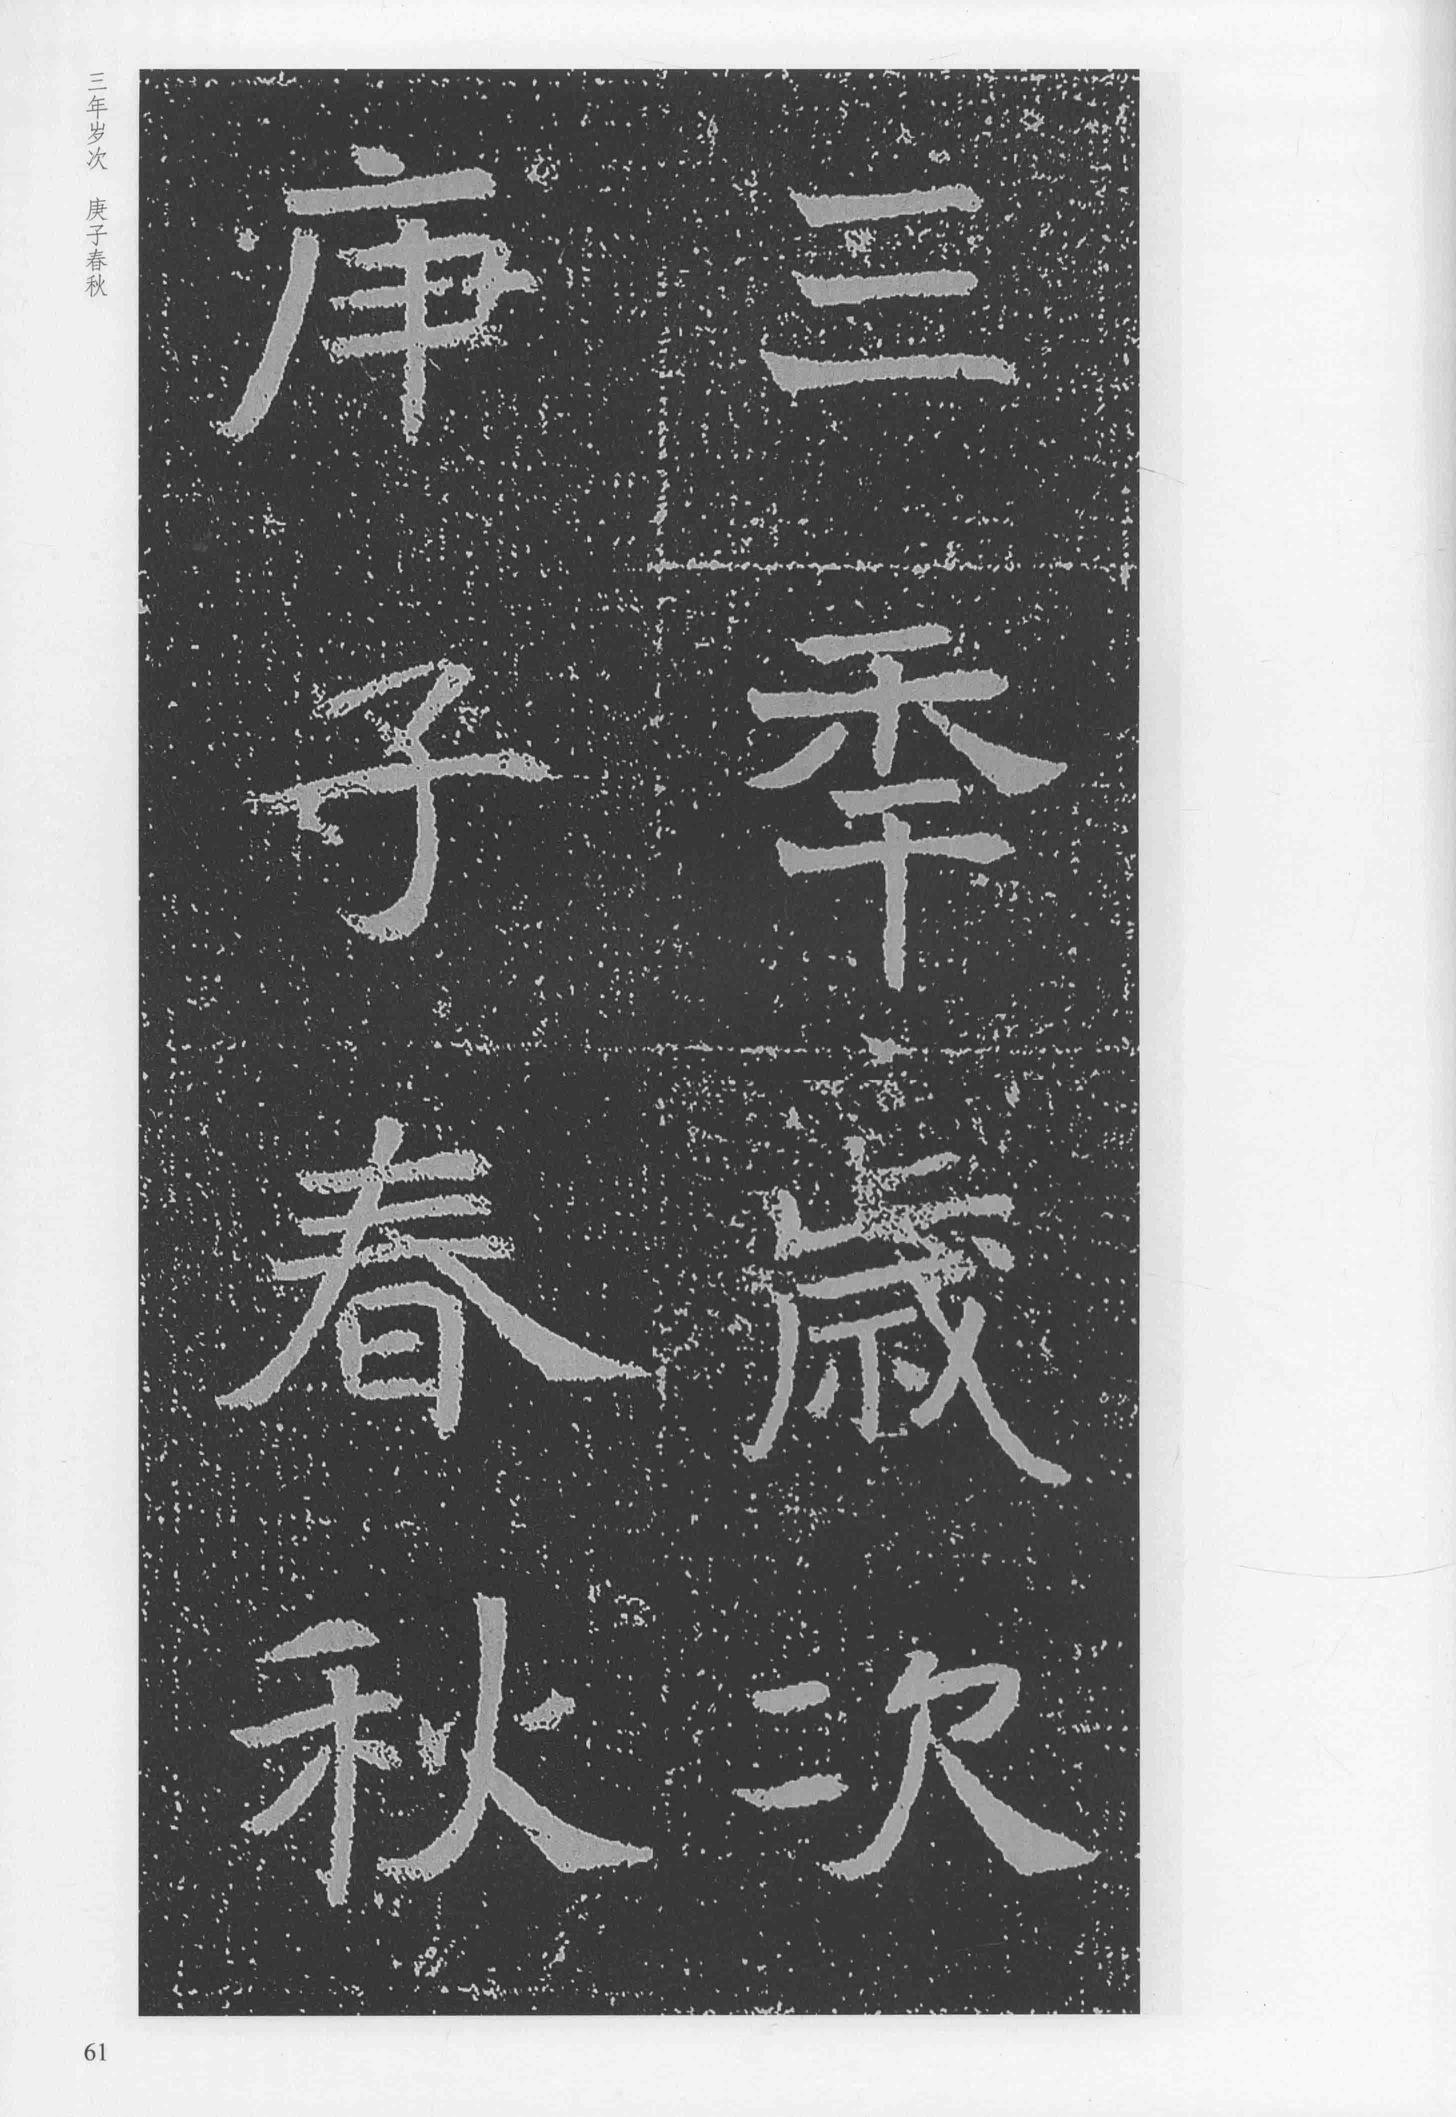 三秊歲次
庚子春秋
三年岁次 庚子春秋
61